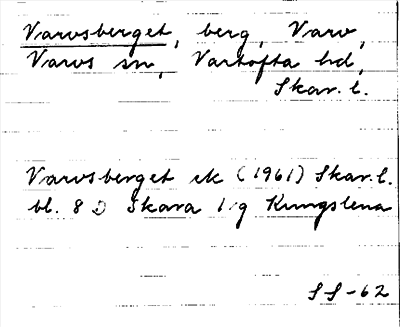 Varvsberget, berg, Varv,
Varvs sn, Vartofta hd,
Skar. l.
Varvsberget ek (1961) Skar. l.
bl. 8 D Skara 1 g Kungslena
SS-62